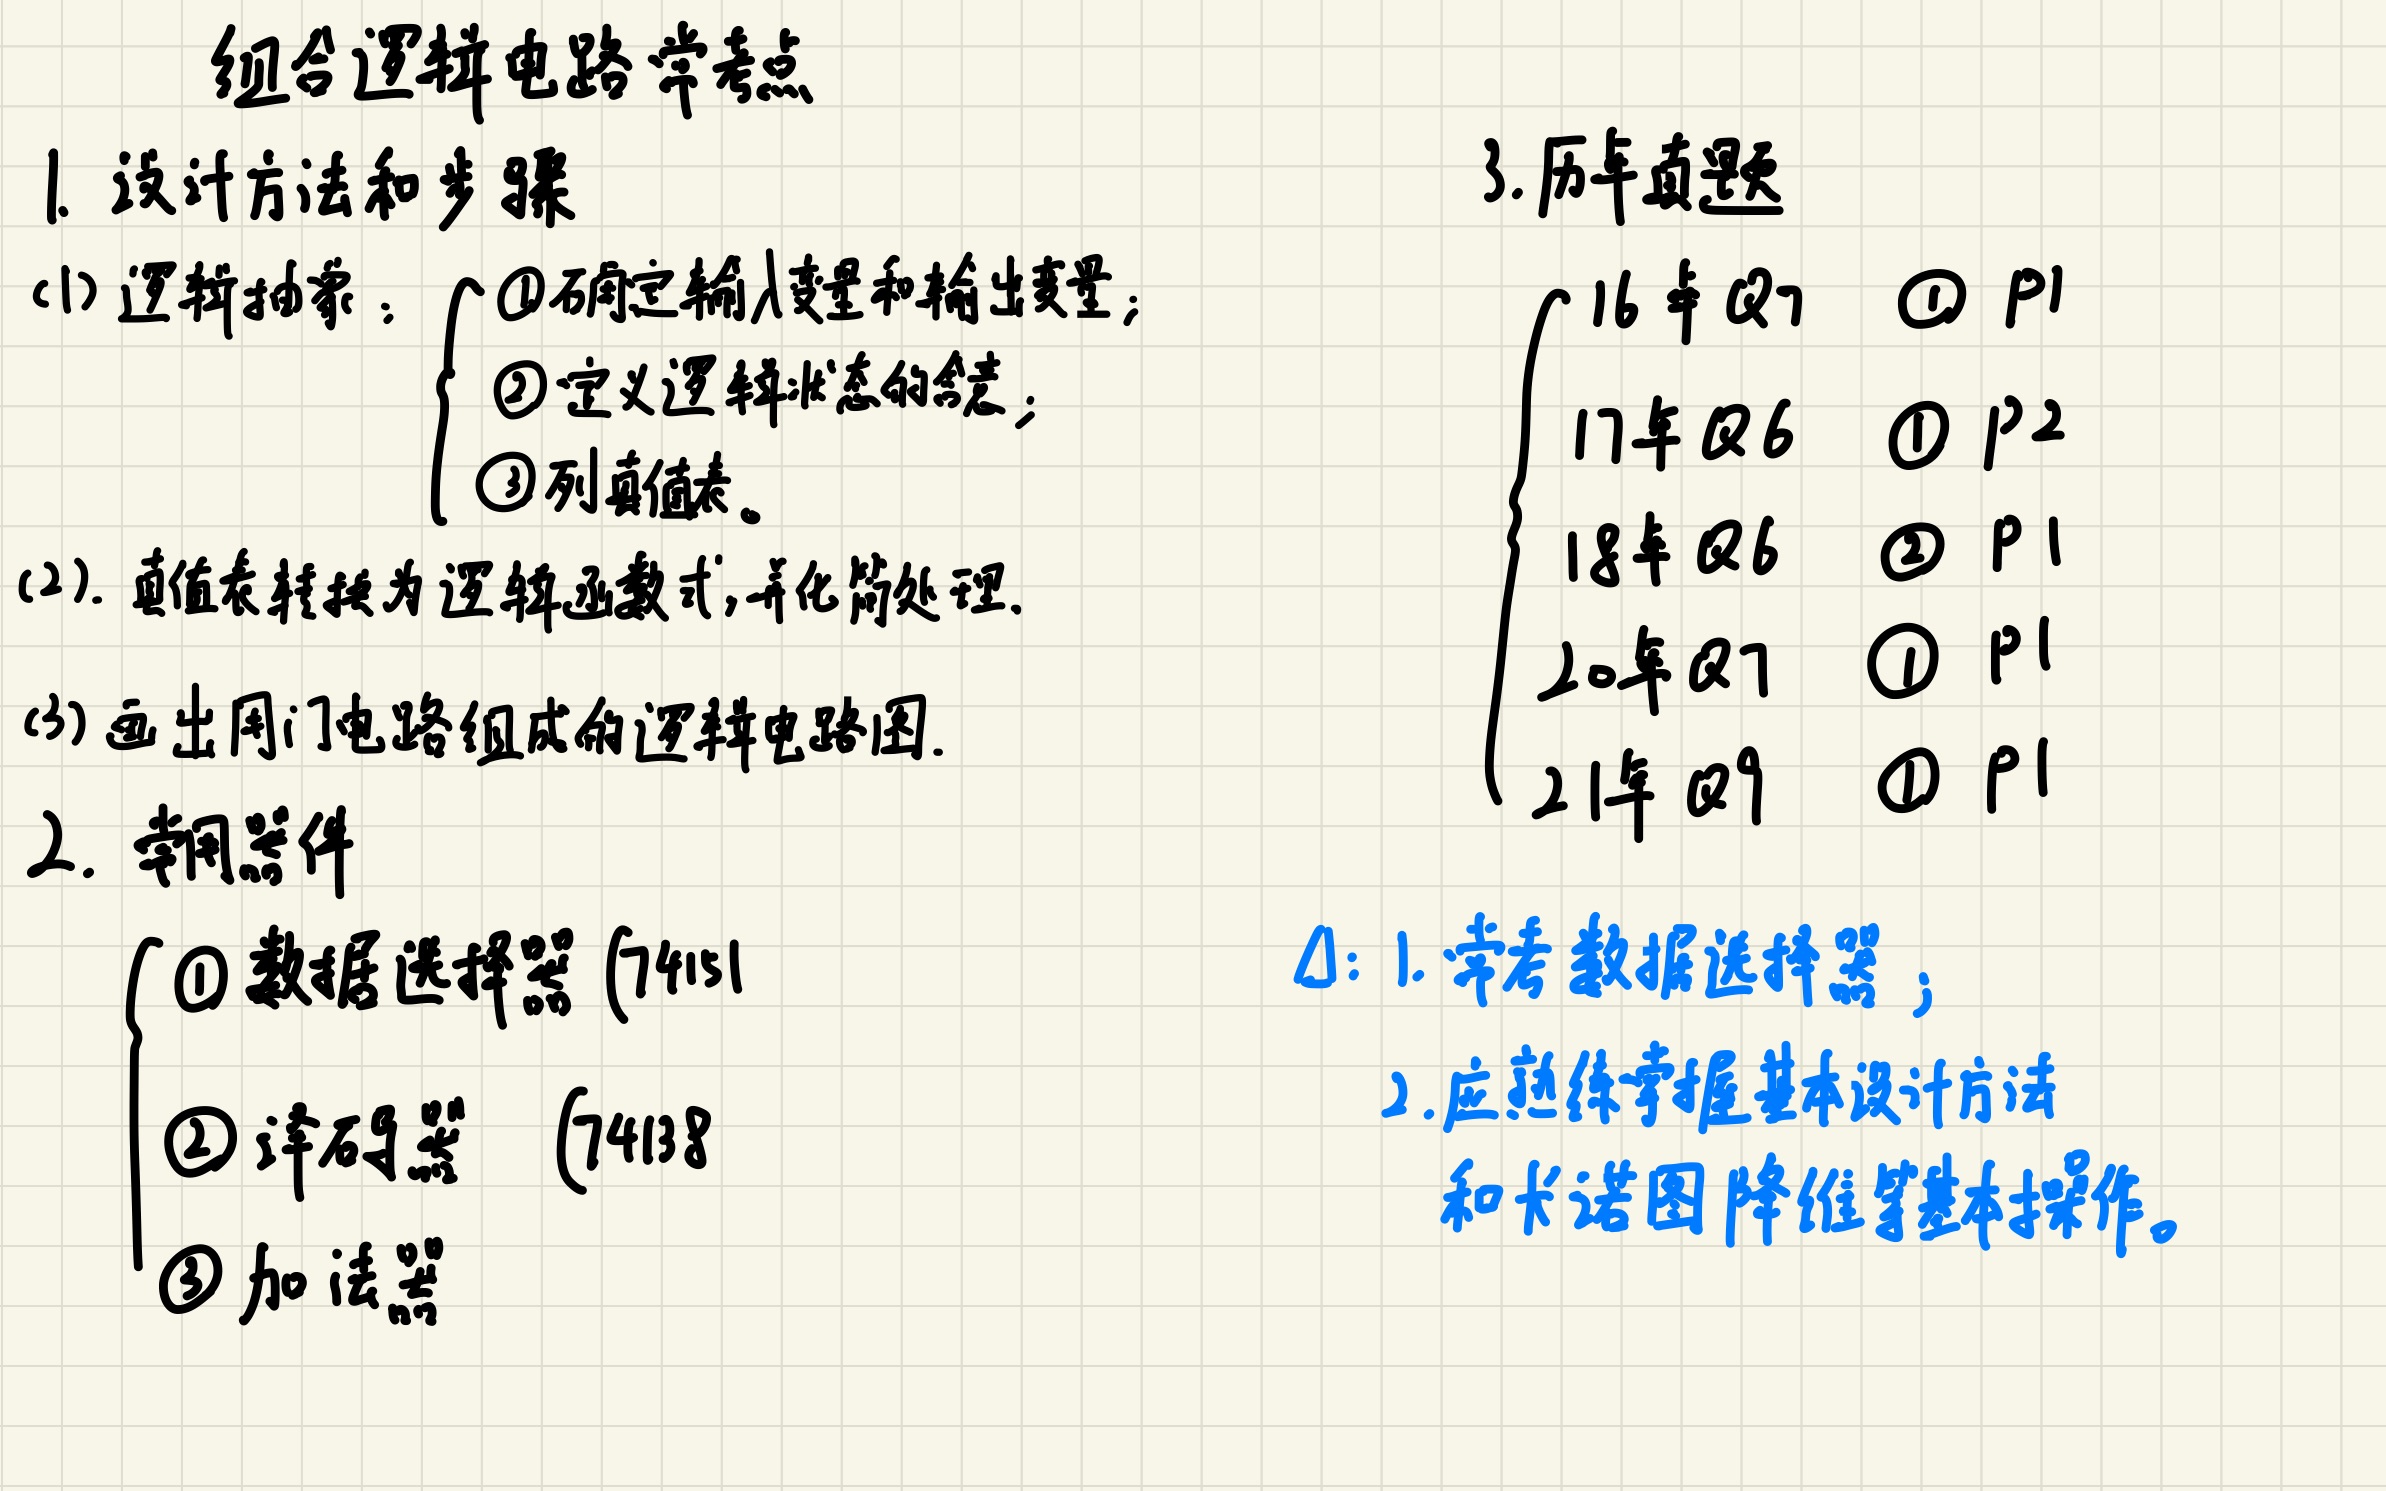 组合逻辑电路常考点
1. 设计方法和步骤
(1) 逻辑抽象：
①确定输入变量和输出变量；
②定义逻辑状态的含意；
③列真值表。
(2). 真值表转换为逻辑函数式，并化简处理.
(3) 画出用门电路组成的逻辑电路图.
2. 常用器件
①数据选择器 (74151
②译码器 (74138
③加法器
3. 历年真题
16年Q7 ① P1
17年Q6 ① P2
18年Q6 ② P1
20年Q7 ① P1
21年Q9 ① P1
Δ: 1. 常考数据选择器；
2. 应熟练掌握基本设计方法
和卡诺图降维等基本操作。